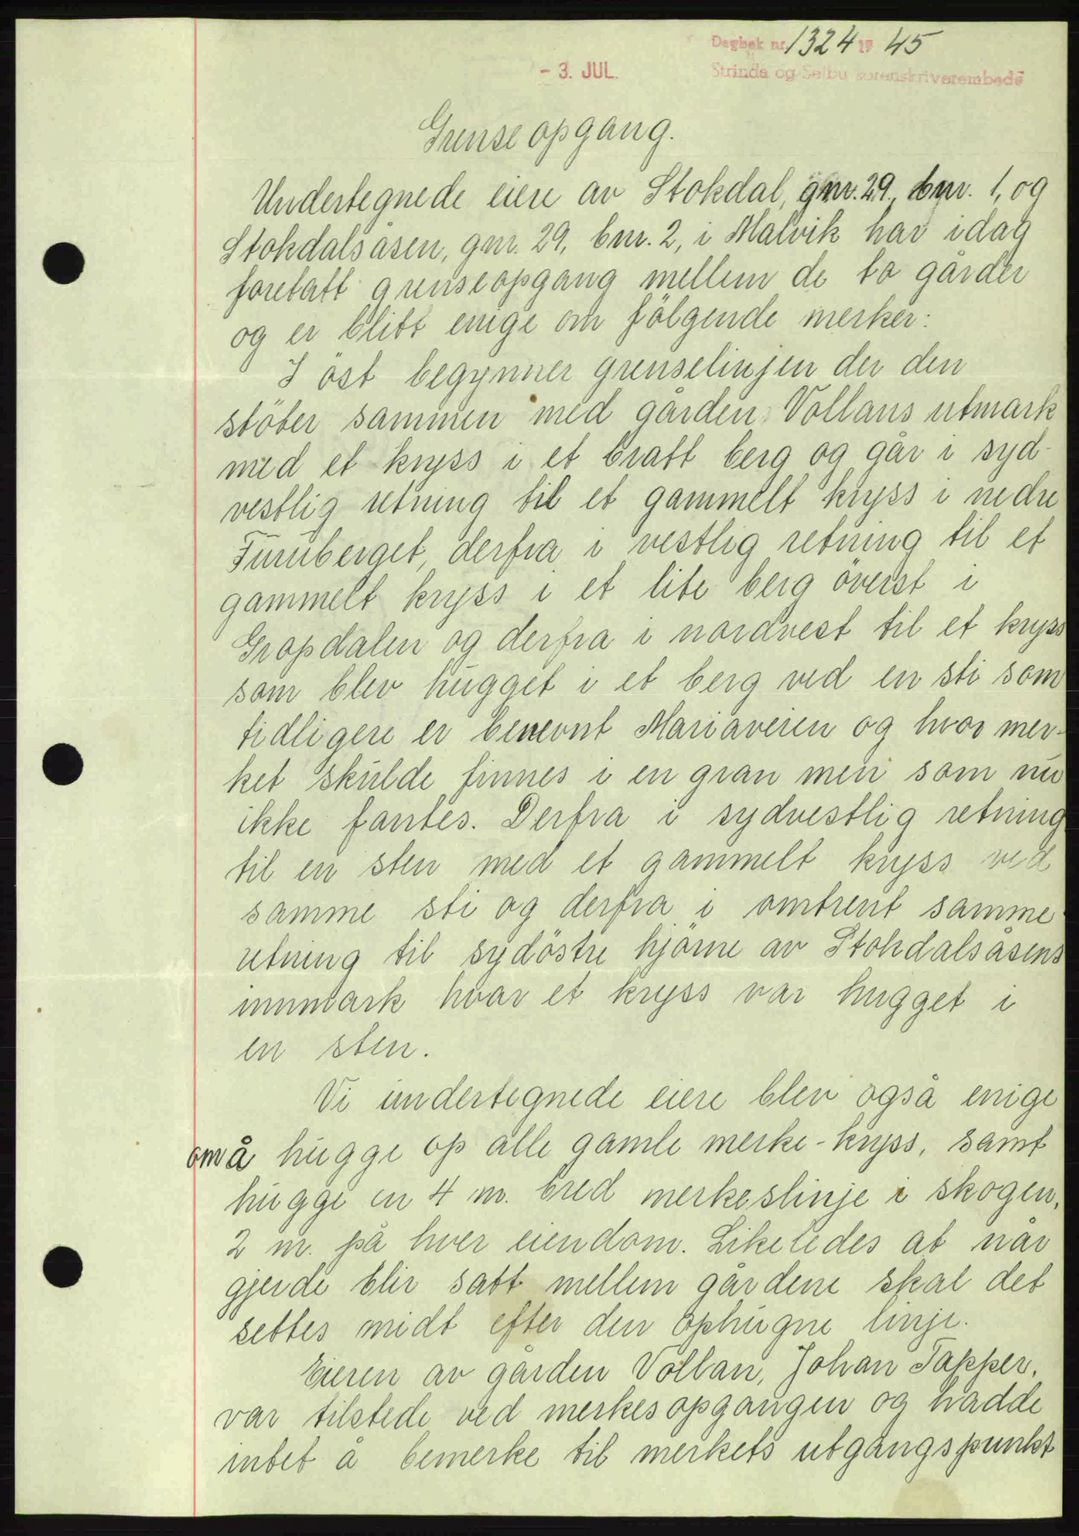 Dagbok nr. 1324 19 45
- 3. JUL.
Strinda og Selbu sorenskriverembede
Grenseopgang.
Undertegnede eiere av Stokdal, gnr. 29, bnr. 1, og
Stokdalsåsen, gnr. 29, bnr. 2, i Malvik har idag
foretatt grenseopgang mellem de to gårder
og er blitt enige om fölgende merker:
I öst begynner grenselinjen der den
stöter sammen med gården Vollans utmark
med et kryss i et bratt berg og går i syd-
vestlig retning til et gammelt kryss i nedre
Furuberget, derfra i vestlig retning til et
gammelt kryss i et lite berg överst i
Gropdalen og derfra i nordvest til et kryss
som blev hugget i et berg ved en sti som
tidligere er benevnt Mariaveien og hvor mer-
ket skulde finnes i en gran men som nu
ikke fantes. Derfra i sydvestlig retning
til en sten med et gammelt kryss ved
samme sti og derfra i omtrent samme
retning til sydöstre hjörne av Stokdalsåsens
innmark hvor et kryss var hugget i
en sten.
Vi undertegnede eiere blev også enige
om å hugge op alle gamle merke-kryss, samt
hugge en 4 m. bred merkeslinje i skogen,
2 m. på hver eiendom. Likeledes at når
gjerde blir satt mellem gårdene skal det
settes midt efter den ophugne linje.
Eieren av gården Vollan, Johan Tapper,
var tilstede ved merkesopgangen og hadde
intet å bemerke til merkets utgangspunkt